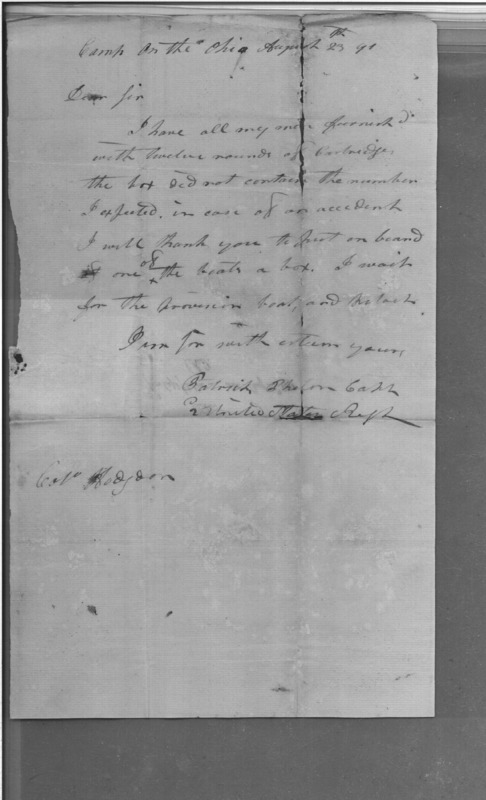 Camp on the Ohio August 23th 91
Dear Sir
I have all my men furnish'd
with twelve rounds of Cartridges
the box did not contain the number
I expected, in case of an accident
I will thank you to put on board
one of the boats a box. I wait
for the provision boat, and
I am Sir with esteem yours,
Patrick Phelon Capt
2 United States Regt
Colo Hodgdon